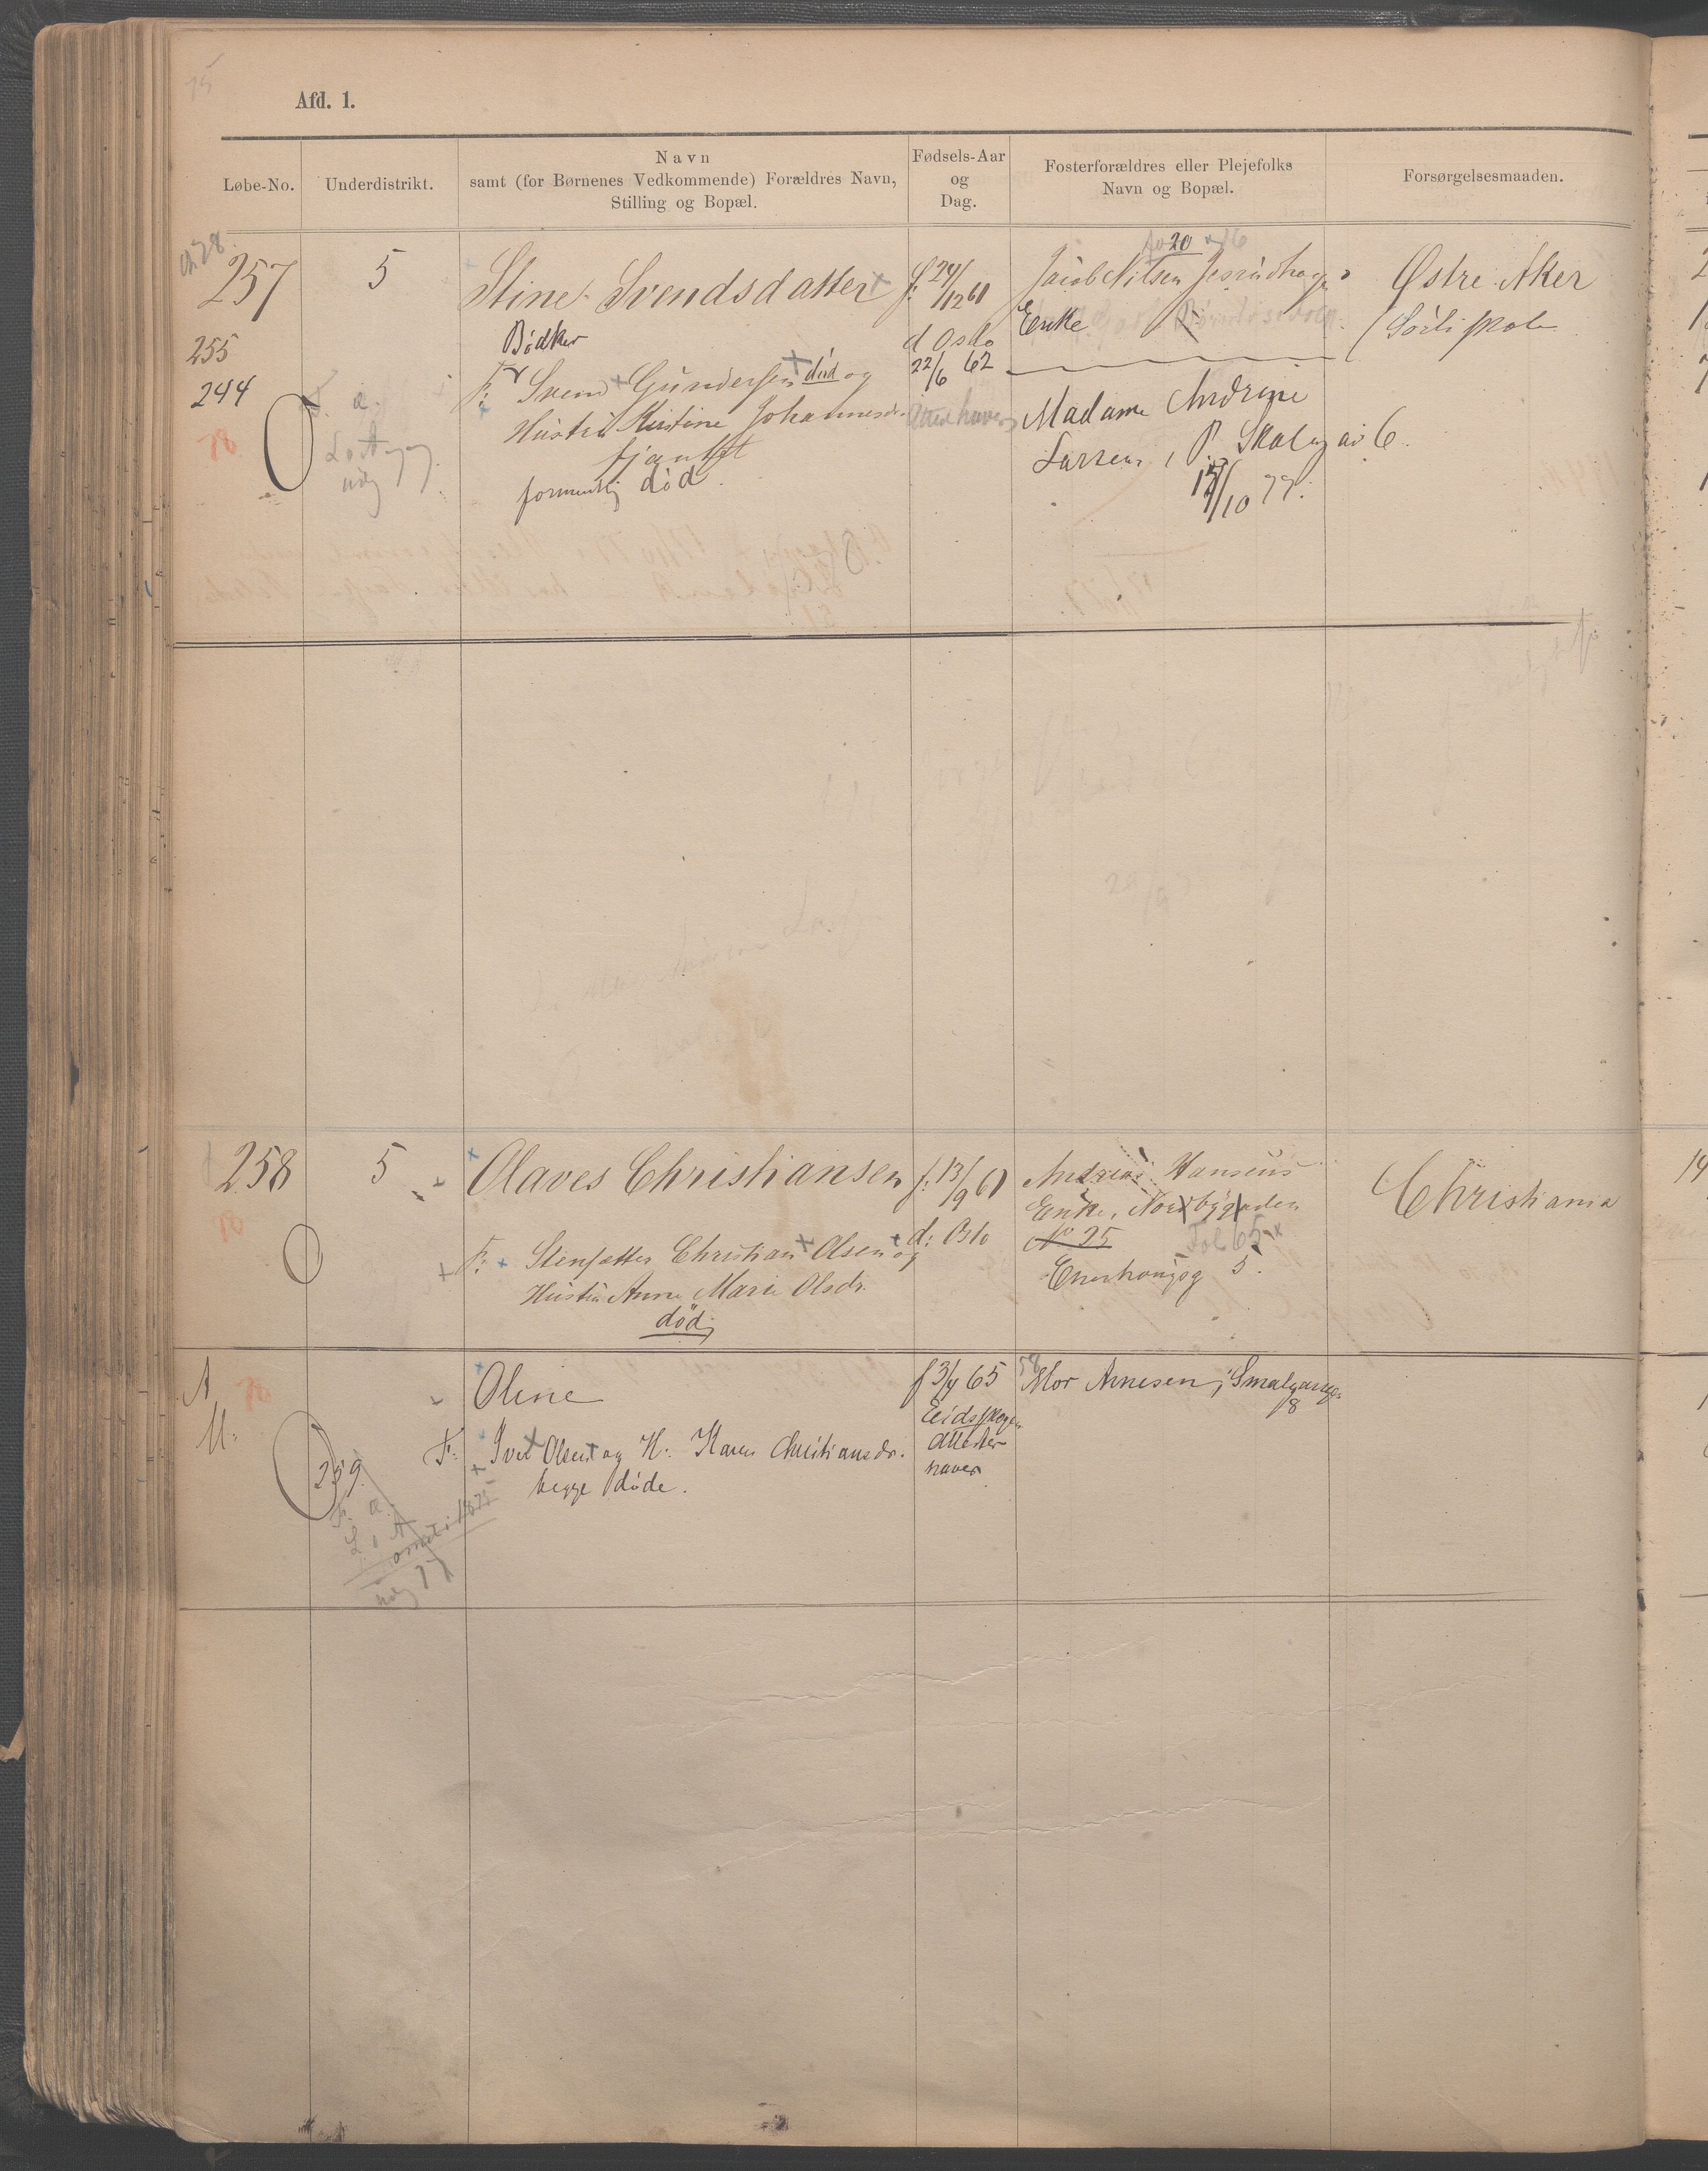 75
Afd. 1.
Løbe-No.
Underdistrikt.
Navn
samt (for Børnenes Vedkommende) Forældres Navn,
Stilling og Bopæl.
Fødsels-Aar
og
Dag.
Fosterforældres eller Plejefolks
Navn og Bopæl.
Forsørgelsesmaaden.
257
255
244
78
5
Stine Svendsdatter
Bødker
F: Svend Gundersen død og
Hustru Kistine Johannesdr.
formentlig død.
f. 24/12 61
d Oslo
22/6 62
20
Jacob Nilsen
Enke
Madame Andrine
Larsen, P. Skolegad 6.
/10 77.
Østre Aker
258
5
Olaves Christiansen
F: Stensætter Christian Olsen og
Hustru Anne Marie Olsdr.
død
f: 13/9 61
d: Oslo
Andreas Hansens
Enke, Nordbygaden
No 25
Fol 65
Enerhougsg 5.
Christiania
A
M:
78
259
F. a.
L. A
1875
udg 77
Oline
F: Iver Olsen og H. Karen Christiansdr.
begge døde.
f 3/9 65
Eidskogen
attester
haves
58
Mor Arnesen, Smalgangen
8